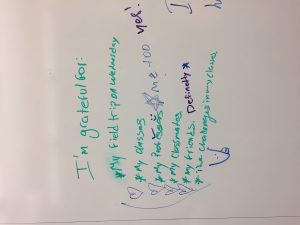 I'm grateful for:
*My field trip on Wednesday
*My classes
*My Professors
*My Classmates
*My friends. Definetly *
*the challenges in my classes
Me too
yes!
I